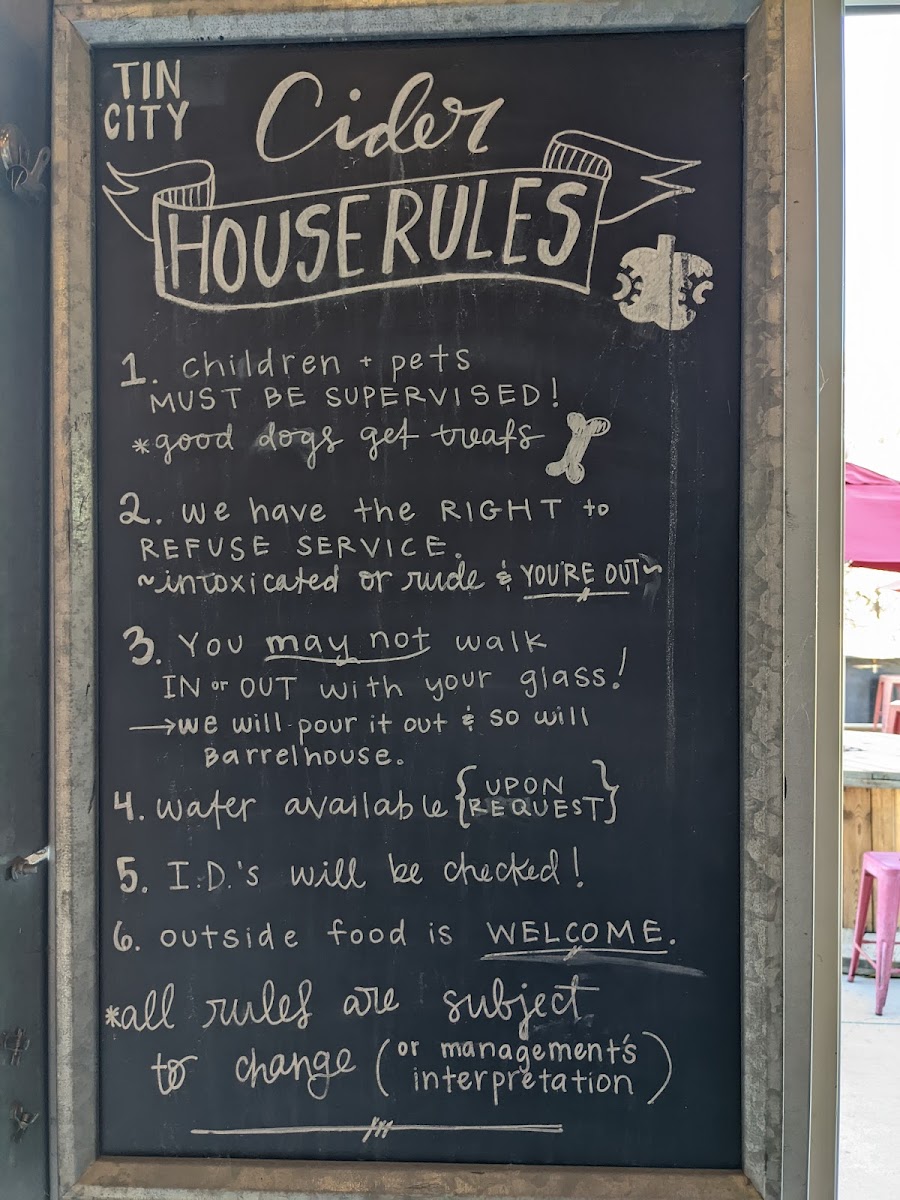 TIN
CITY
Cider
HOUSE RULES
1. children + pets
MUST BE SUPERVISED!
*good dogs get treats
2. we have the RIGHT to
REFUSE SERVICE.
~intoxicated or rude & YOU'RE OUT~
3. You may not walk
IN or OUT with your glass!
→we will pour it out & so will
Barrelhouse.
4. water available {UPON
REQUEST}
5. I.D.'s will be checked!
6. outside food is WELCOME.
*all rules are subject
to change (or management's
interpretation)